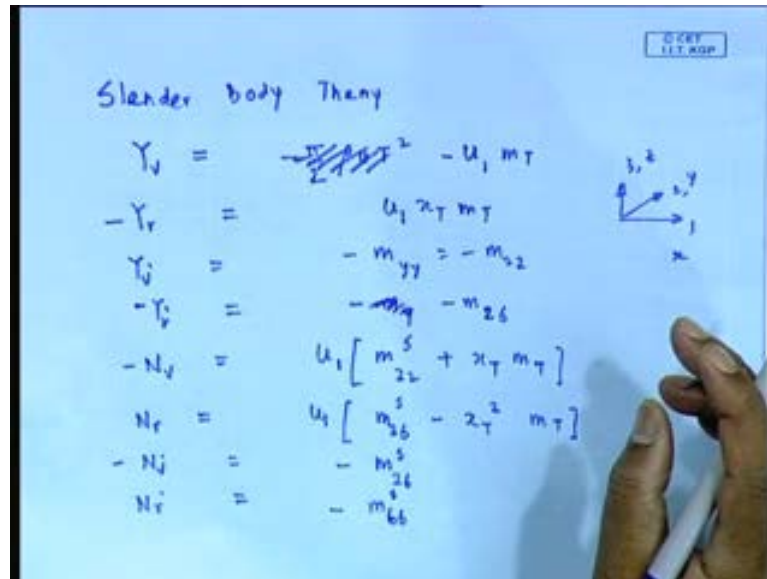 © CET
I.I.T. KGP
Slender Body Theory
Y_v = - U_1 m_T
- Y_r = U_1 x_T m_T
Y_v̇ = - m_yy = - m_22
- Y_ṙ = - m_26
- N_v = U_1 [ m^s_22 + x_T m_T ]
N_r = U_1 [ m^s_26 - x_T^2 m_T ]
- N_v̇ = - m^s_26
N_ṙ = - m^s_66
3, z
2, y
1
x